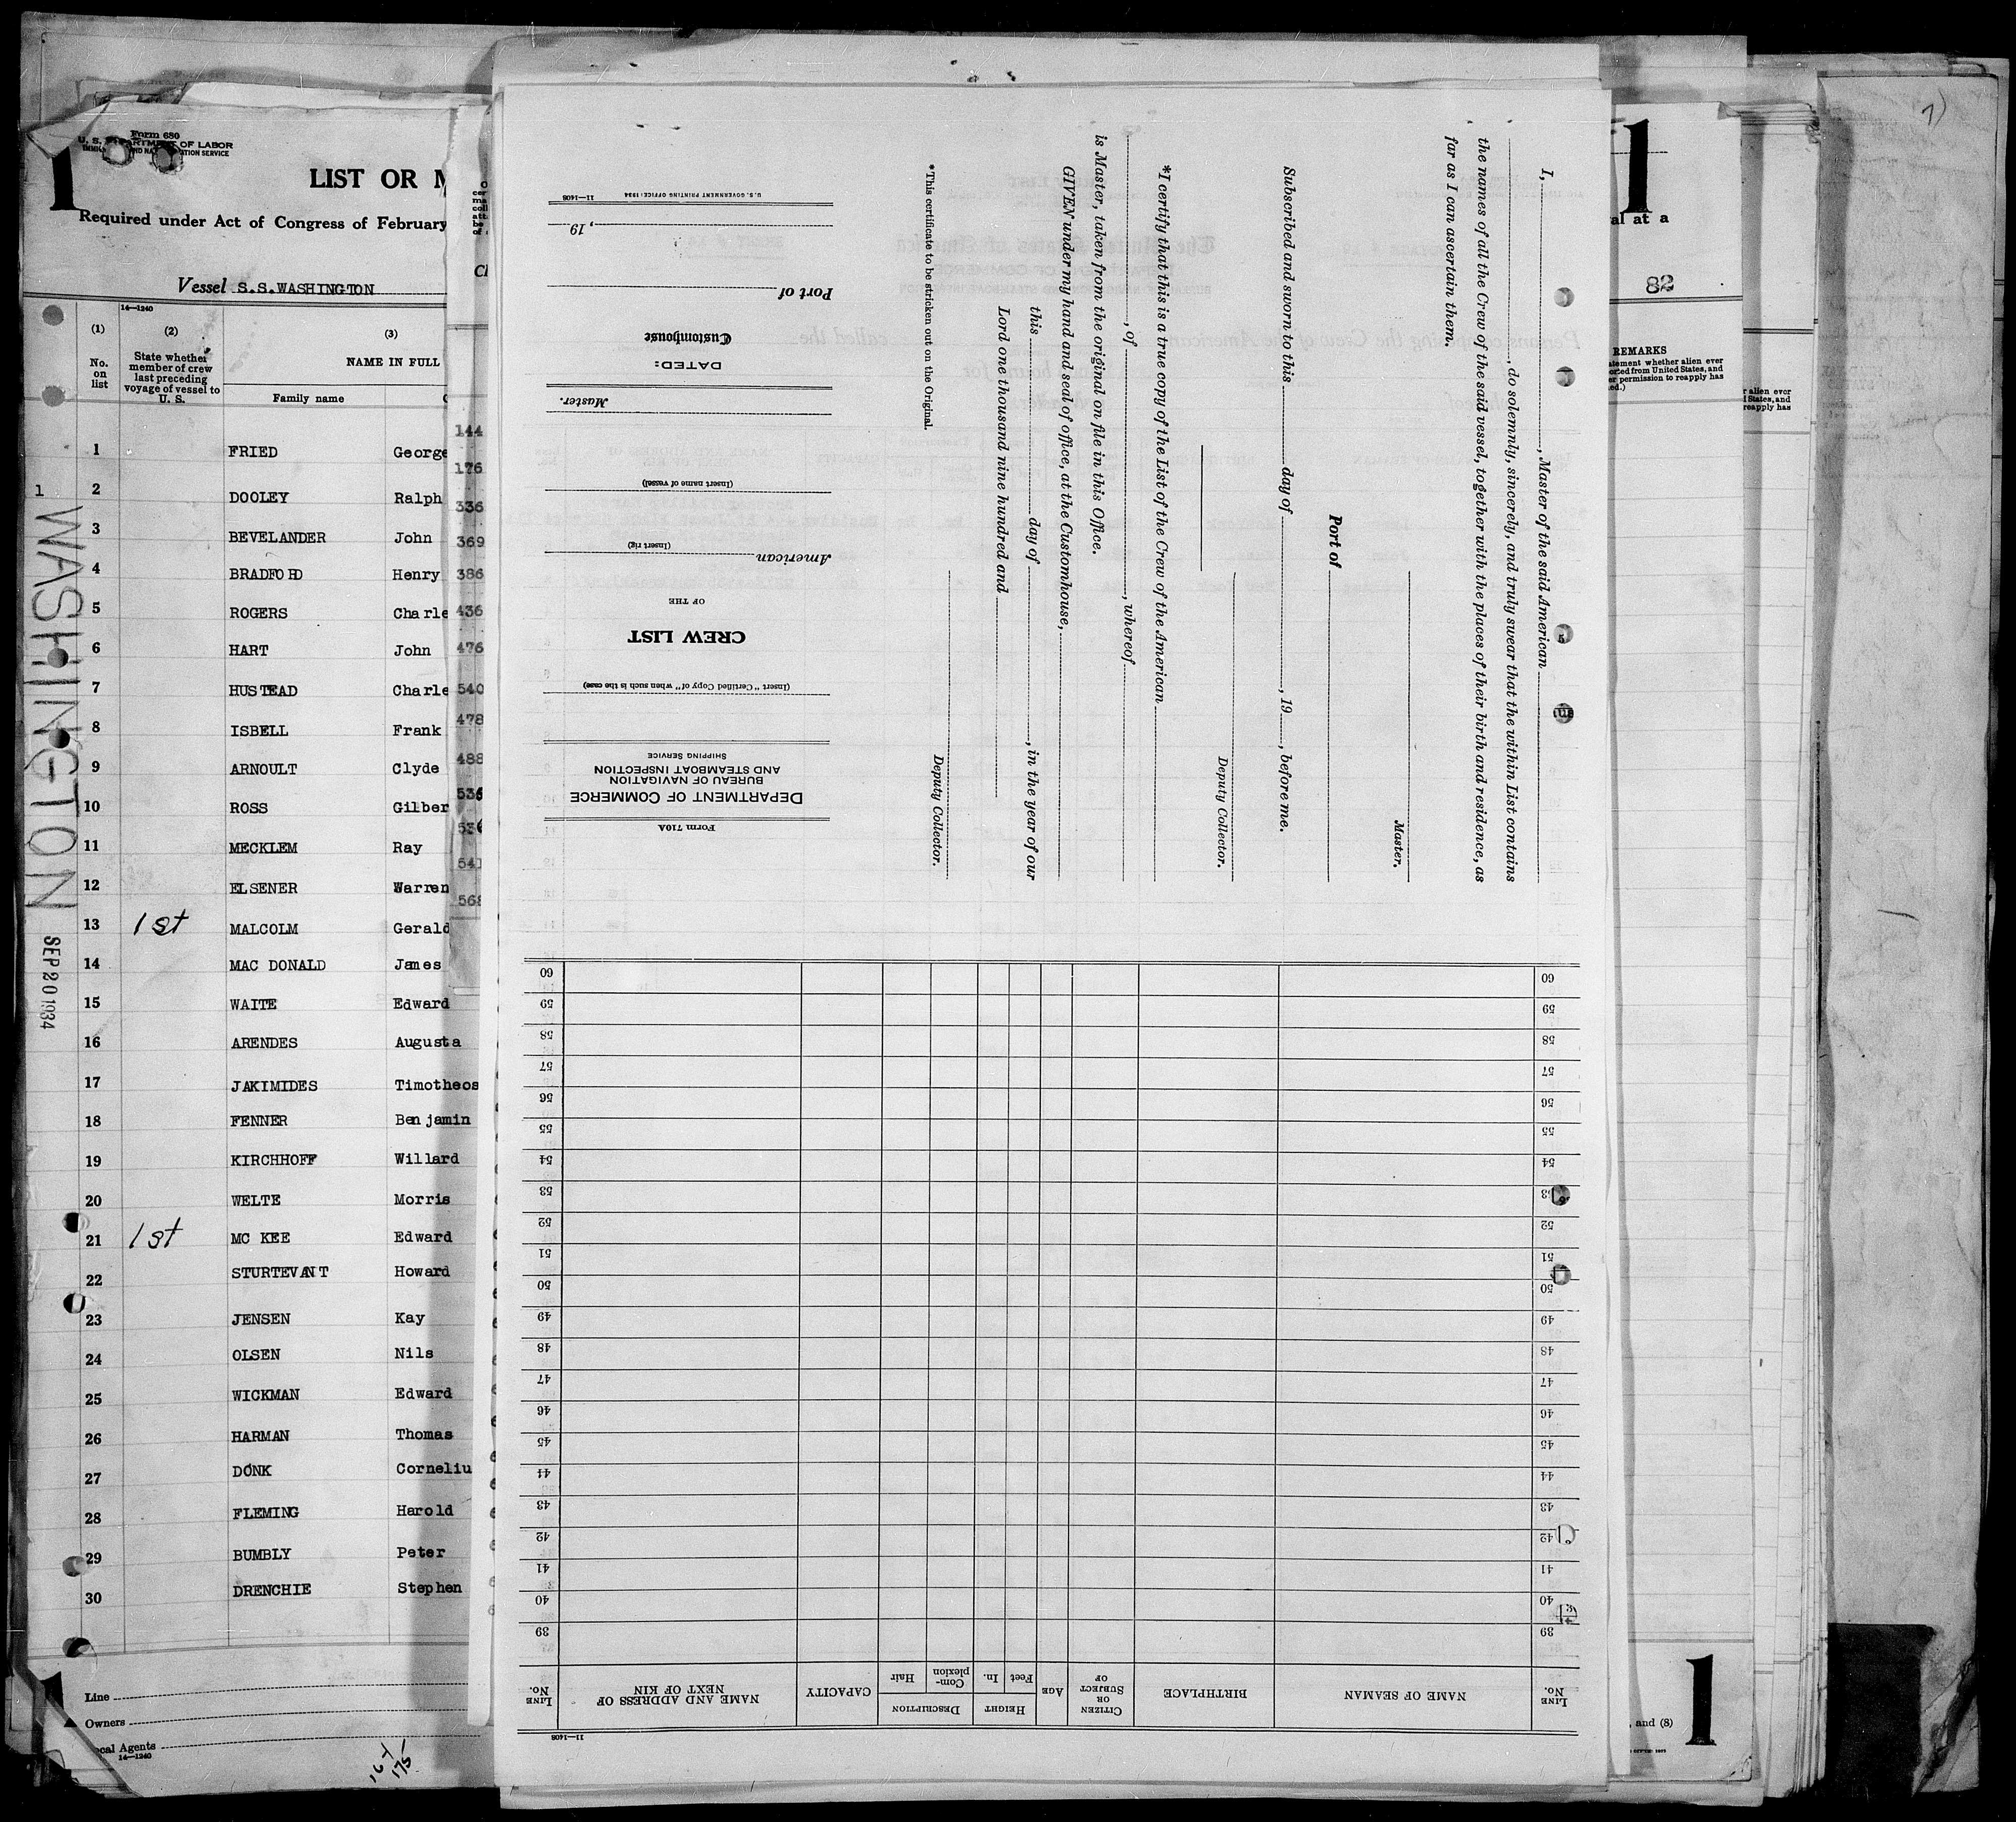 1
Form 680
U. S. DEPARTMENT OF LABOR
LIST OR M
Required under Act of Congress of February
Vessel S.S.WASHINGTON
14—1240
(1) (2) (3)
No. on list
State whether member of crew last preceding voyage of vessel to U. S.
NAME IN FULL
Family name
1 FRIED George
2 DOOLEY Ralph
3 BEVELANDER John
4 BRADFORD Henry
5 ROGERS Charle
6 HART John
7 HUSTEAD Charle
8 ISBELL Frank
9 ARNOULT Clyde
10 ROSS Gilber
11 MECKLEM Ray
12 ELSENER Warren
13 1st MALCOLM Gerald
14 MAC DONALD James
15 WAITE Edward
16 ARENDES Augusta
17 JAKIMIDES Timotheos
18 FENNER Benjamin
19 KIRCHHOFF Willard
20 WELTE Morris
21 1st MC KEE Edward
22 STURTEVANT Howard
23 JENSEN Kay
24 OLSEN Nils
25 WICKMAN Edward
26 HARMAN Thomas
27 DONK Corneliu
28 FLEMING Harold
29 BUMBLY Peter
30 DRENCHIE Stephen
1
WASHINGTON
SEP 20 1934
Line
Owners
cal Agents
14—1240
175
144
176
336
369
386
436
476
540
478
488
536
541
568
I, , Master of the said American
, do solemnly, sincerely, and truly swear that the within List contains
the names of all the Crew of the said vessel, together with the places of their birth and residence, as
far as I can ascertain them.
Master.
Port of
Subscribed and sworn to this day of , 19 , before me.
Deputy Collector.
*I certify that this is a true copy of the List of the Crew of the American
, of , whereof
is Master, taken from the original on file in this Office.
GIVEN under my hand and seal of office, at the Customhouse,
this day of , in the year of our
Lord one thousand nine hundred and
Deputy Collector.
*This certificate to be stricken out on the Original.
Form 710A
DEPARTMENT OF COMMERCE
BUREAU OF NAVIGATION
AND STEAMBOAT INSPECTION
SHIPPING SERVICE
(Insert "Certified Copy of" when such is the case)
CREW LIST
OF THE
American
(Insert rig)
(Insert name of vessel)
Master.
DATED:
Customhouse
Port of
, 19
U.S. GOVERNMENT PRINTING OFFICE: 1934 11—1408
11—1408
LINE No.
NAME OF SEAMAN
BIRTHPLACE
CITIZEN OR SUBJECT OF
AGE
HEIGHT
Feet
In.
DESCRIPTION
Complexion
Hair
CAPACITY
NAME AND ADDRESS OF NEXT OF KIN
LINE No.
39 39
40 40
41 41
42 42
43 43
44 44
45 45
46 46
47 47
48 48
49 49
50 50
51 51
52 52
53 53
54 54
55 55
56 56
57 57
58 58
59 59
60 60
1
al at a
82
REMARKS
atement whether alien ever
orted from United States, and
er permission to reapply has
ed.)
r alien ever
States, and
reapply has
, and (8)
1